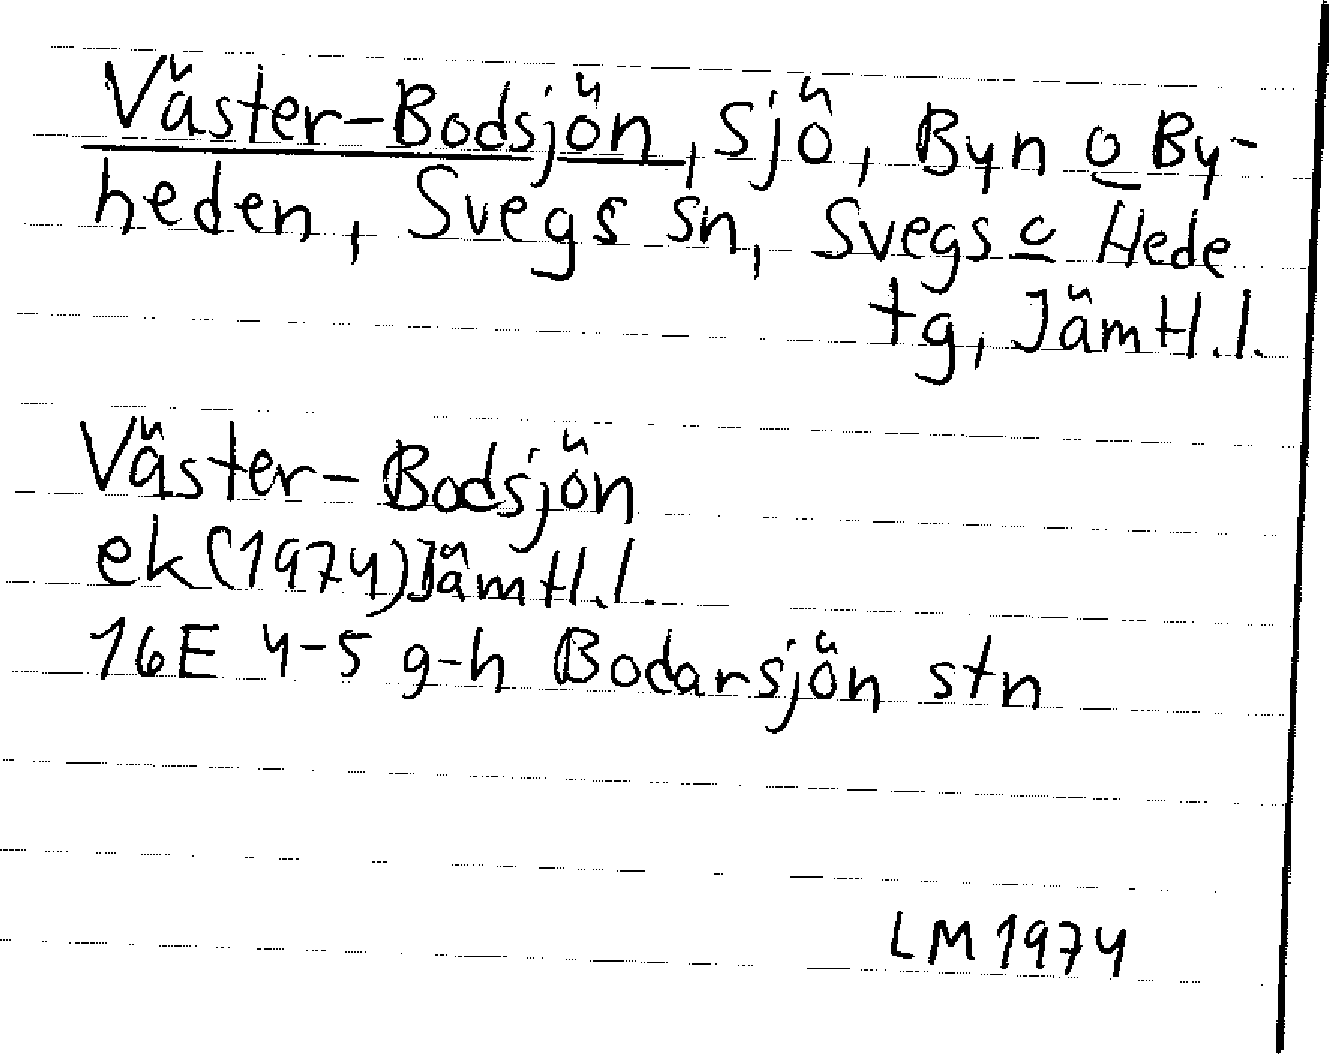 Väster-Bodsjön, sjö, Byn o By-
heden, Svegs sn, Svegs o Hede
tg, Jämtl.l.
Väster-Bodsjön
ek (1974) Jämtl.l.
16E 4-5 g-h Bodarsjön stn
LM 1974